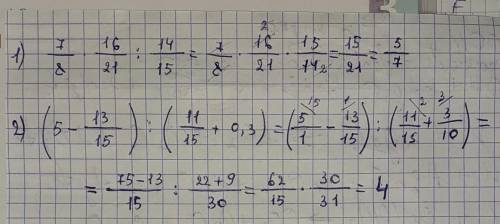 1) 7/8 · 16/21 : 14/15 = 7/8 · 16²/21 · 15/14₂ = 15/21 = 5/7
2) (5 - 13/15) : (11/15 + 0,3) = (5/1 ¹⁵ - 13/15 ¹) : (11/15 ² + 3/10 ³) =
= 75-13/15 : 22+9/30 = 62/15 · 30/31 = 4